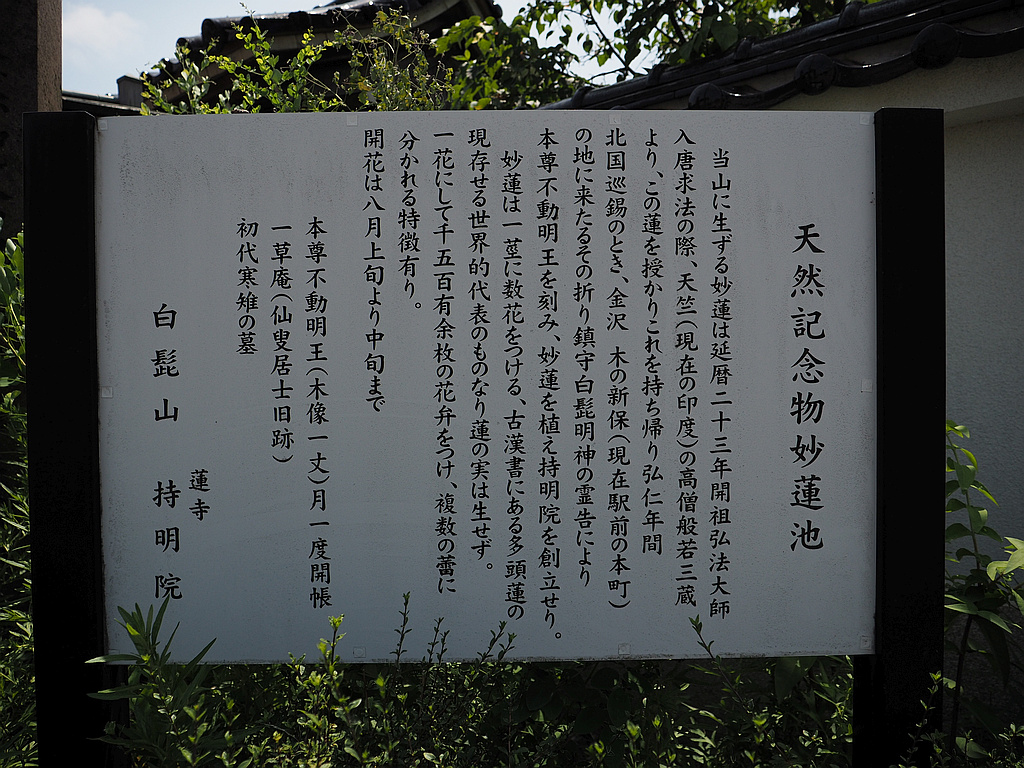 天然記念物妙蓮池
当山に生ずる妙蓮は延暦二十三年開祖弘法大師
入唐求法の際、天竺(現在の印度)の高僧般若三蔵
より、この蓮を授かりこれを持ち帰り弘仁年間
北国巡錫のとき、金沢 木の新保(現在駅前の本町)
の地に来たるその折り鎮守白髭明神の霊告により
本尊不動明王を刻み、妙蓮を植え持明院を創立せり。
妙蓮は一茎に数花をつける、古漢書にある多頭蓮の
現存せる世界的代表のものなり蓮の実は生せず。
一花にして千五百有余枚の花弁をつけ、複数の蕾に
分かれる特徴有り。
開花は八月上旬より中旬まで
本尊不動明王(木像一丈)月一度開帳
一草庵(仙叟居士旧跡)
初代寒雉の墓
蓮寺
白髭山 持明院